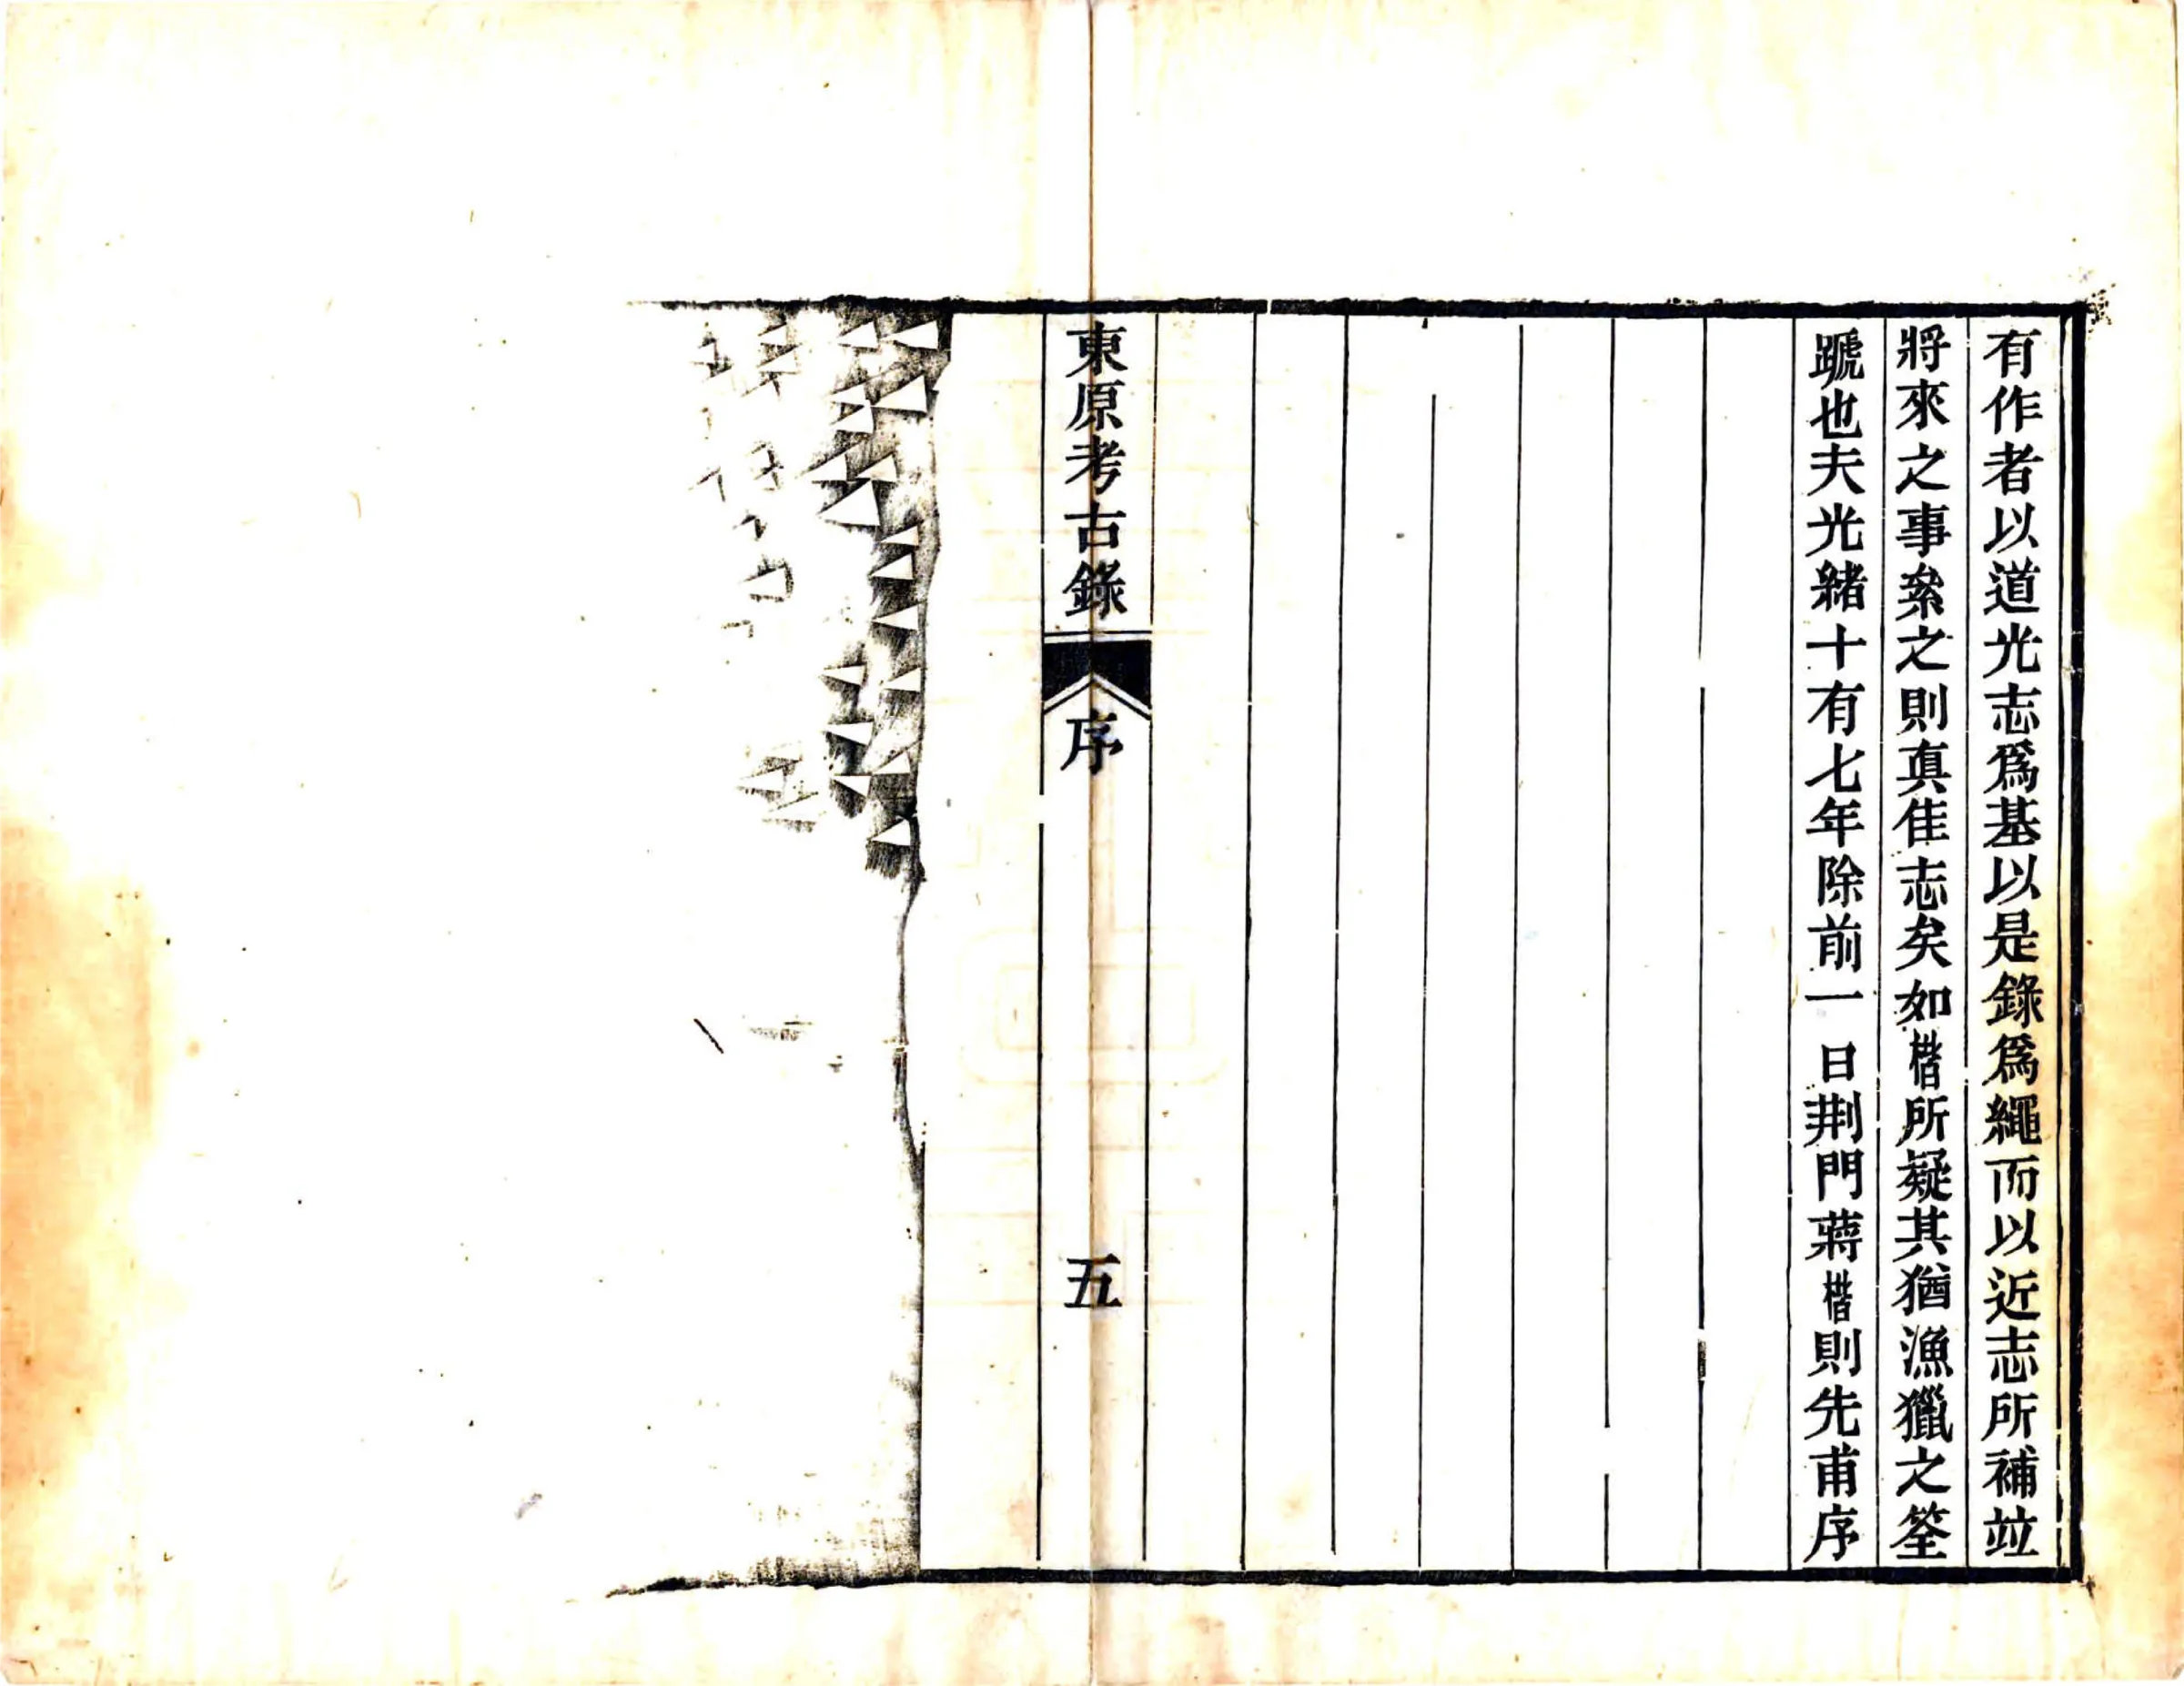 有作者以道光志爲基以是錄爲繩而以近志所補竝
將來之事絫之則眞佳志矣如楷所疑其猶漁獵之筌
蹏也夫光緒十有七年除前一日荆門蔣楷則先甫序
東原考古錄 序 五